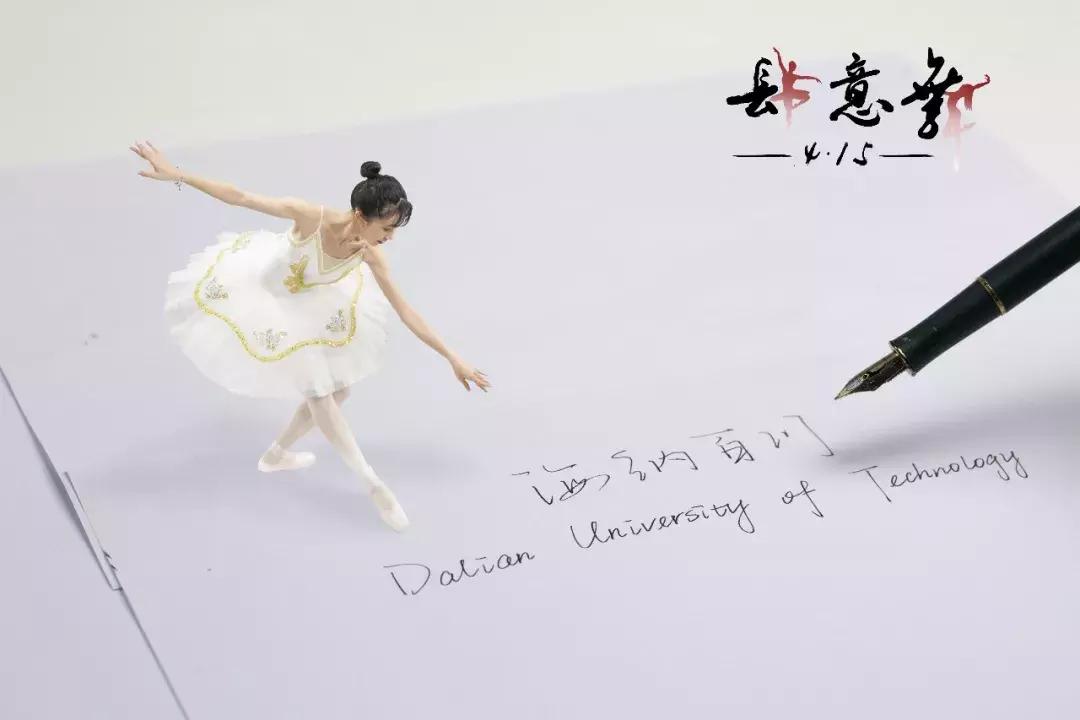 肆意舞
4.15
海纳百川
Dalian University of Technology